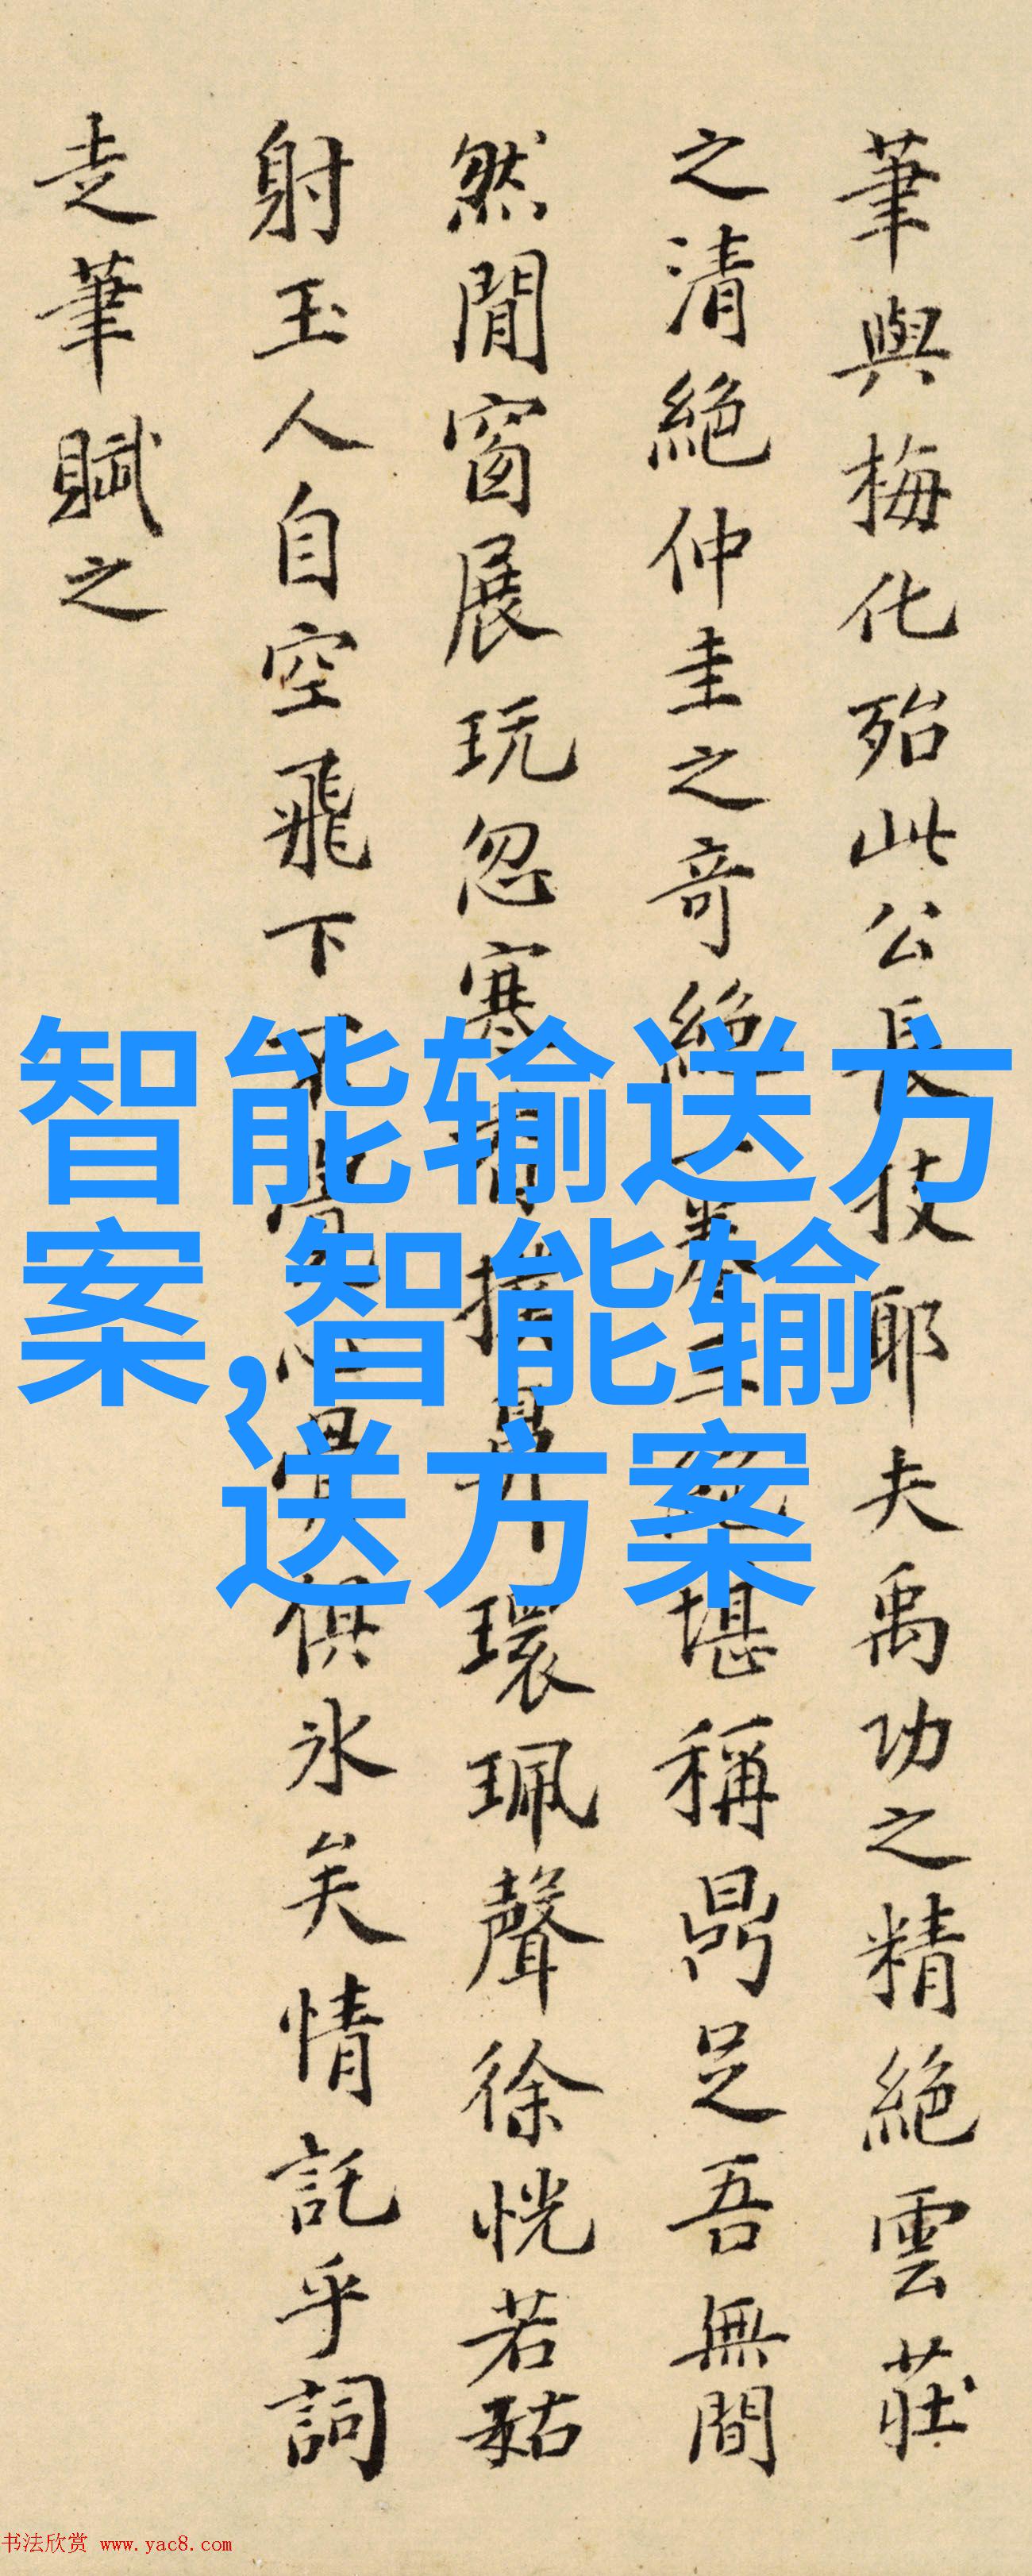 筆與梅化殆此公長技耶夫禹功之精絕雲莊
之清絕仲圭之奇絕卷三絕堪稱鼎足吾無間
然閒窗展玩忽寒香撲鼻環珮聲徐恍若藐姑
射玉人自空飛下不覺心骨俱冰矣情託乎詞
走筆賦之
智能输送方
案,智能输
送方案
书法欣赏 www.yac8.com